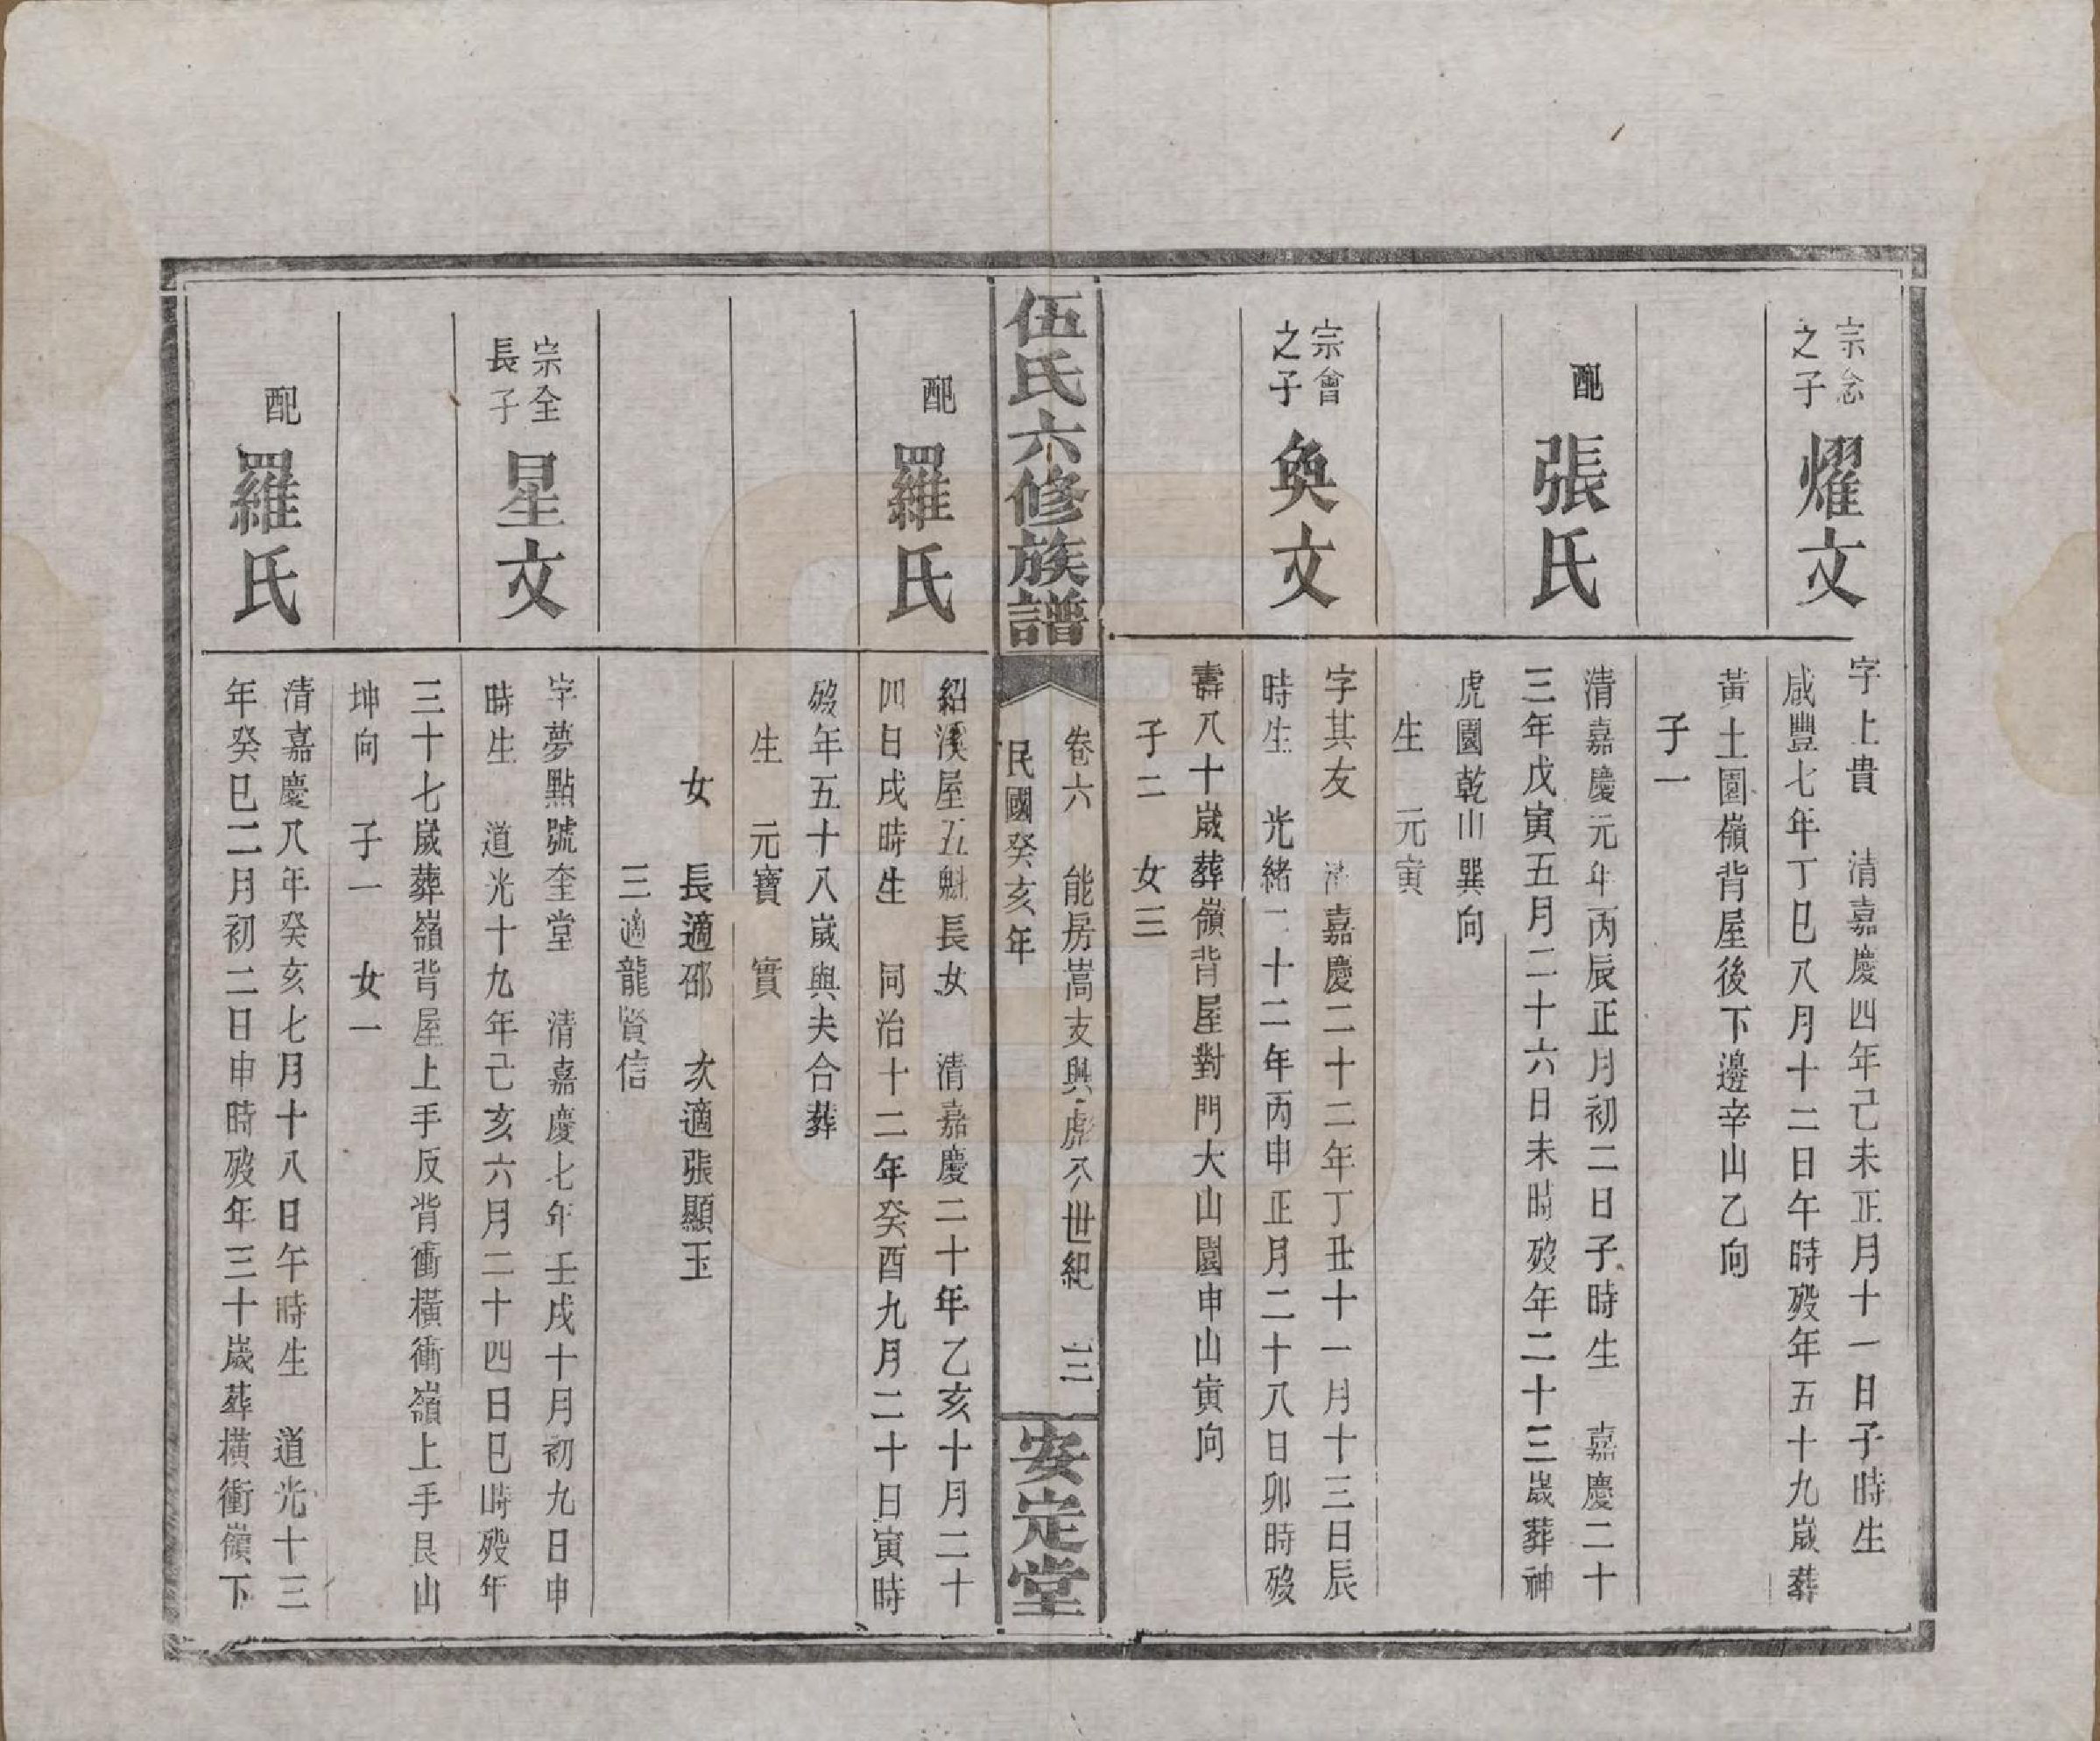 宗念
之子
燿文
字上貴　清嘉慶四年己未正月十一日子時生
咸豐七年丁巳八月十二日午時歿年五十九歲葬
黃土園嶺背屋後下邊辛山乙向
子一
配
張氏
清嘉慶元年丙辰正月初二日子時生　嘉慶二十
三年戊寅五月二十六日未時歿年二十三歲葬神
虎園乾山巽向
生　元寅
宗會
之子
奐文
字其友　清嘉慶二十二年丁丑十一月十三日辰
時生　光緒二十二年丙申正月二十八日卯時歿
壽八十歲葬嶺背屋對門大山園申山寅向
子二　女三
伍氏六修族譜
卷六　能房嵩支與彪公世紀　三
民國癸亥年
安定堂
配
羅氏
紹溪屋五魁長女　清嘉慶二十年乙亥十月二十
四日戌時生　同治十二年癸酉九月二十日寅時
歿年五十八歲與夫合葬
生　元寶　寅
女　長適邵　次適張顯玉
三適龍賢信
宗全
長子
星文
字夢點號奎堂　清嘉慶七年壬戌十月初九日申
時生　道光十九年己亥六月二十四日巳時歿年
三十七歲葬嶺背屋上手反背衝橫衝嶺上手艮山
坤向　子一　女一
配
羅氏
清嘉慶八年癸亥七月十八日午時生　道光十三
年癸巳二月初二日申時歿年三十歲葬橫衝嶺下